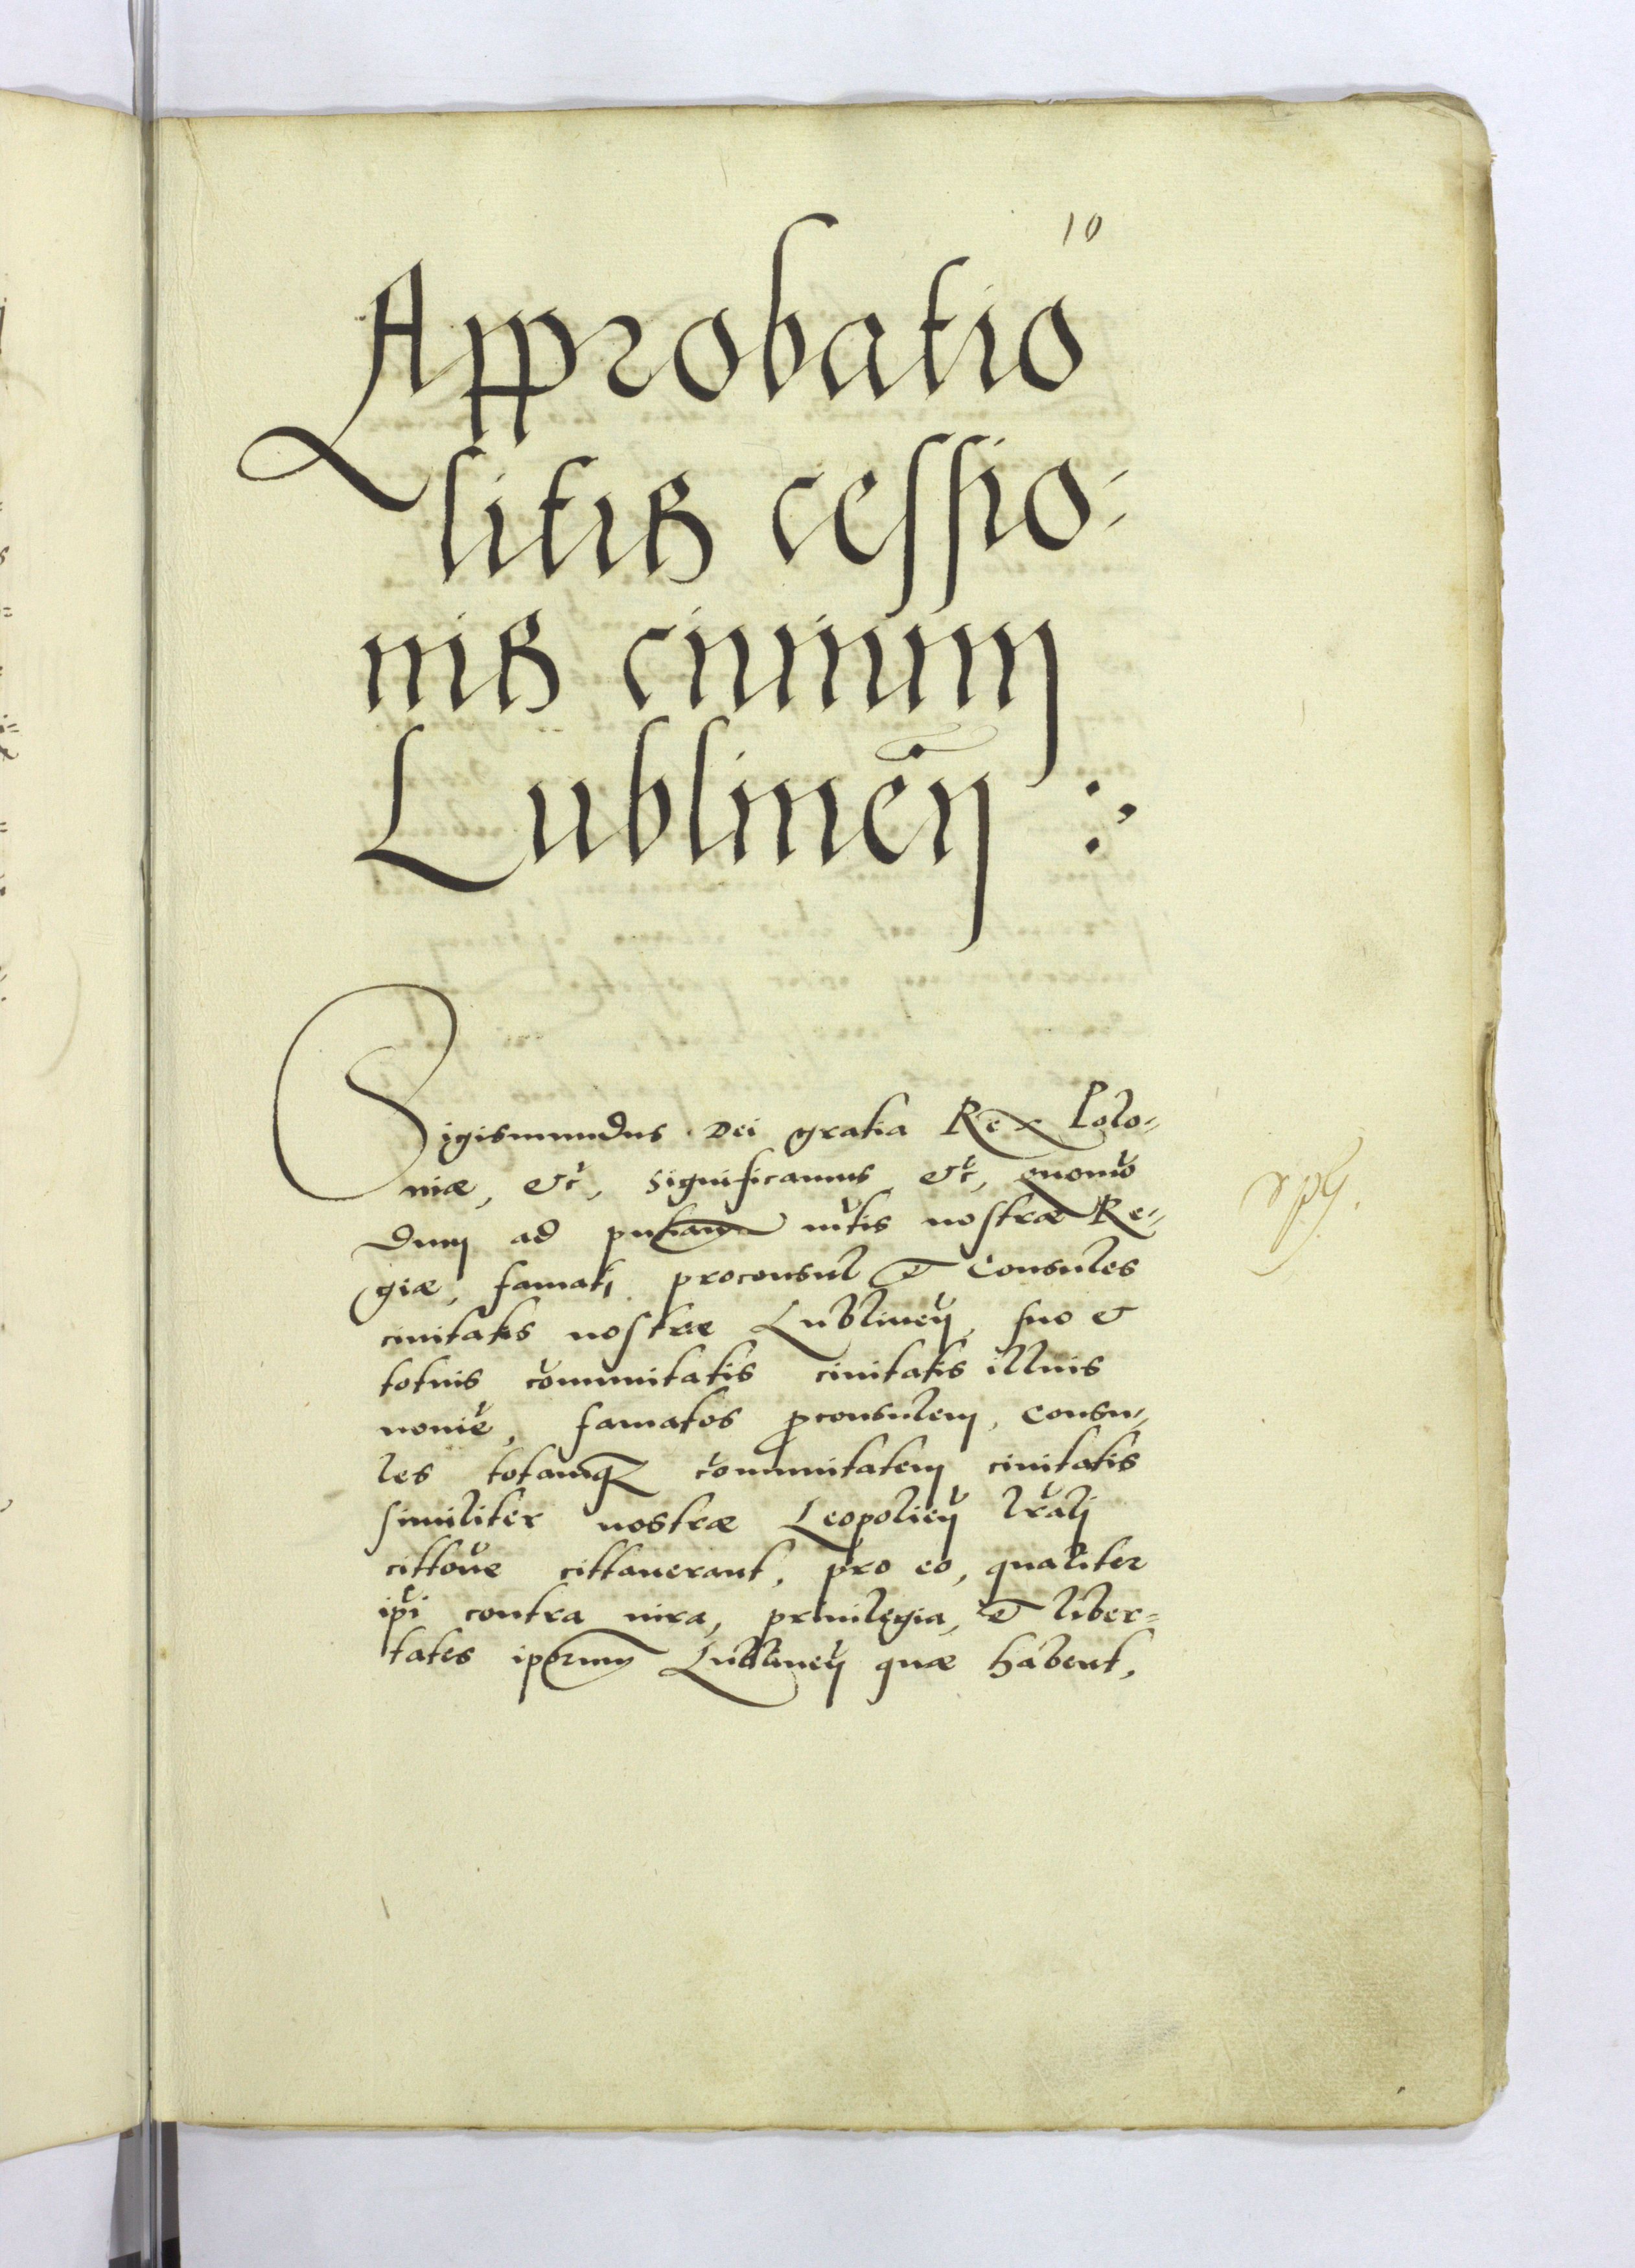 10
Approbatio
litis cessio-
nis ciuium
Lublineñ :
Sigismundus Dei gratia Rex Polo-
niæ, etc̃, significamus etc̃, quomõ
dum ad pntiam mtis nostræ Re-
giæ, famati proconsul et Consules
ciuitatis nostræ Lublineñ, suo et
totius com̃unitatis ciuitatis illius
noiẽ, famatos ꝓconsulem, Consu-
les totamqꝫ com̃unitatem ciuitatis
similiter nostræ Leopolień lrãli
cittoñe cittauerant, pro eo, qualiter
ip̃i contra iura, priuilegia, et liber-
tates ip̃orum Lublineñ quæ habent,